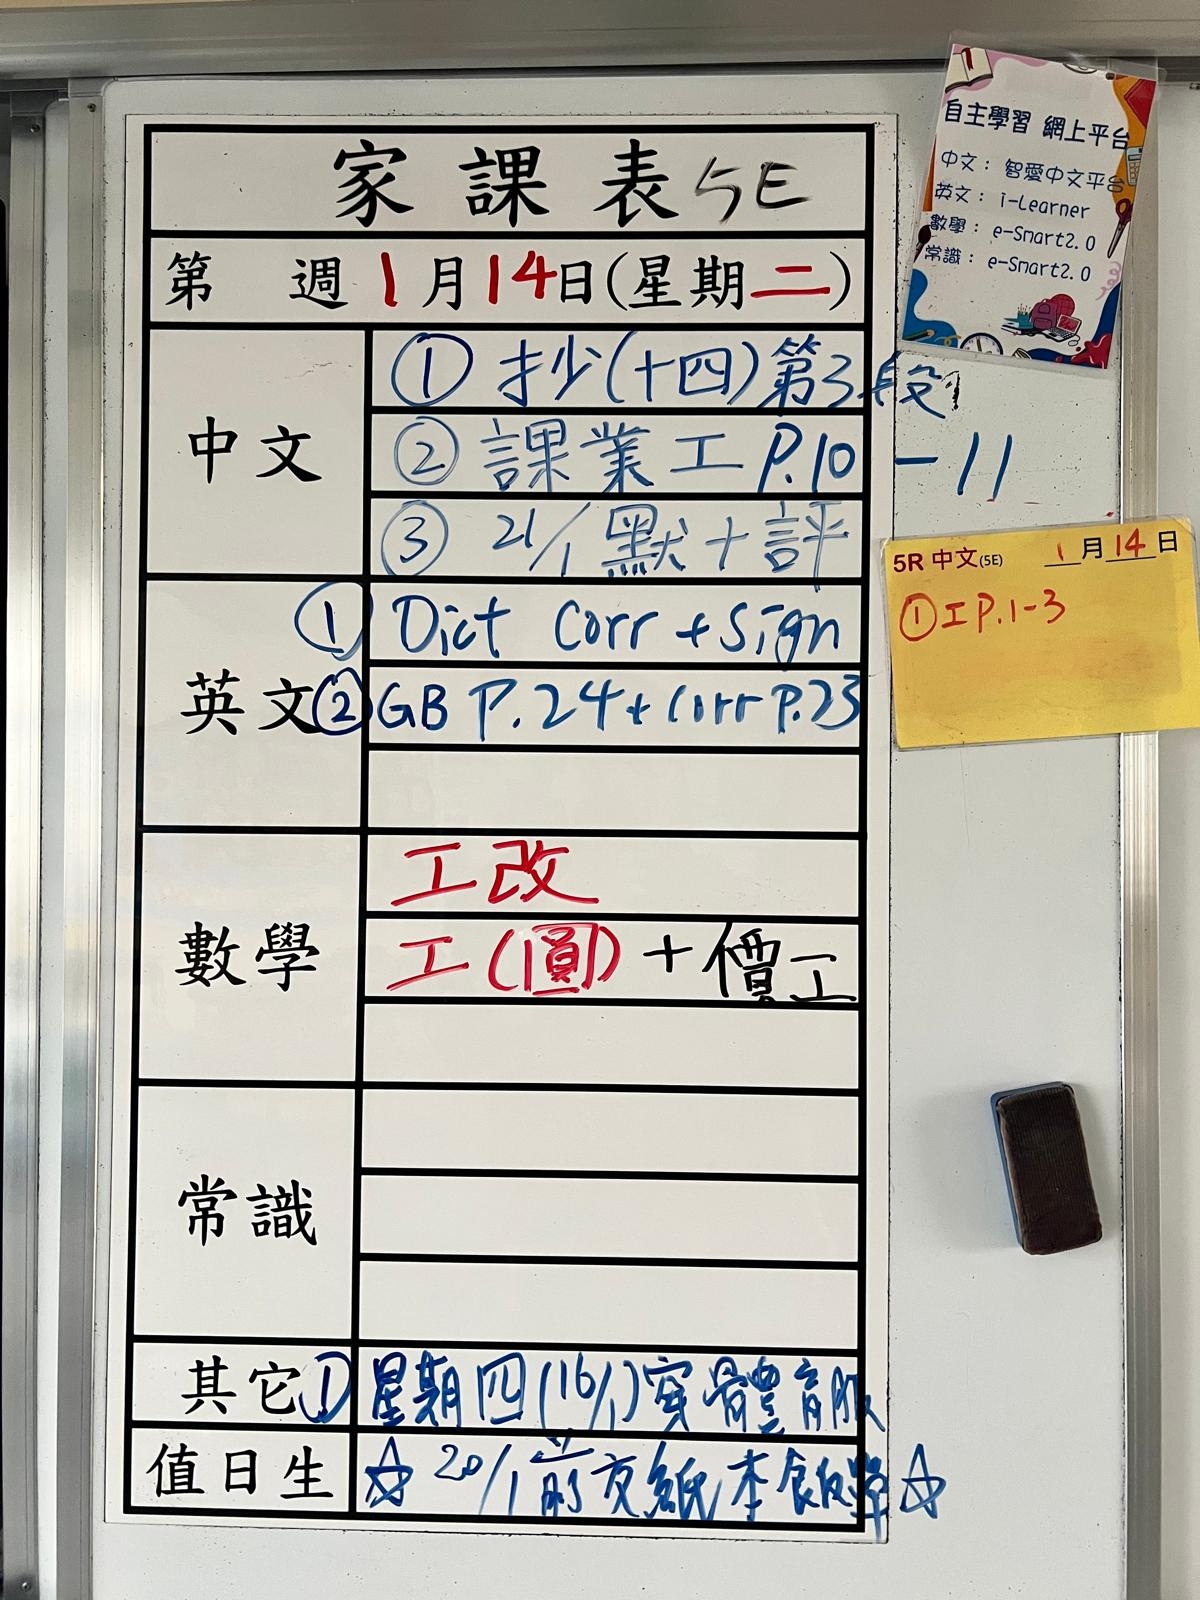 家課表 5E
第 週 1月14日(星期二)
中文
① 抄(十四)第3段
② 課業工 P.10-11
③ 21/1 默+評
英文
① Dict Corr + Sign
② GB P.24 + Corr P.23
數學
工改
工(圓)+價工
常識
其它
① 星期四(16/1)穿體育服
值日生
☆ 20/1前交紙本飯單☆
自主學習 網上平台
中文: 智愛中文平台
英文: i-Learner
數學: e-Smart2.0
常識: e-Smart2.0
5R 中文(5E) 1月14日
①工P.1-3